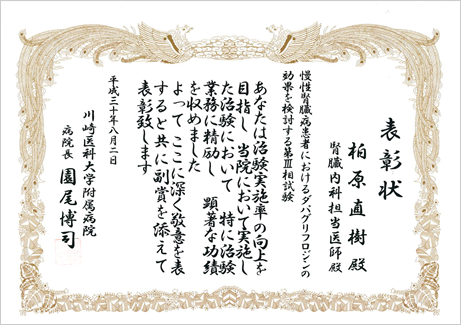 表彰状
柏原直樹殿
腎臓内科担当医師殿
慢性腎臓病患者におけるダパグリフロジンの
効果を検討する第Ⅲ相試験
あなたは治験実施率の向上を
目指し 当院において実施し
た治験において 特に治験
業務に精励し 顕著な功績
を収めました
よって ここに深く敬意を表
すると共に副賞を添えて
表彰致します
平成三十年八月二日
川崎医科大学附属病院
病院長 園尾博司